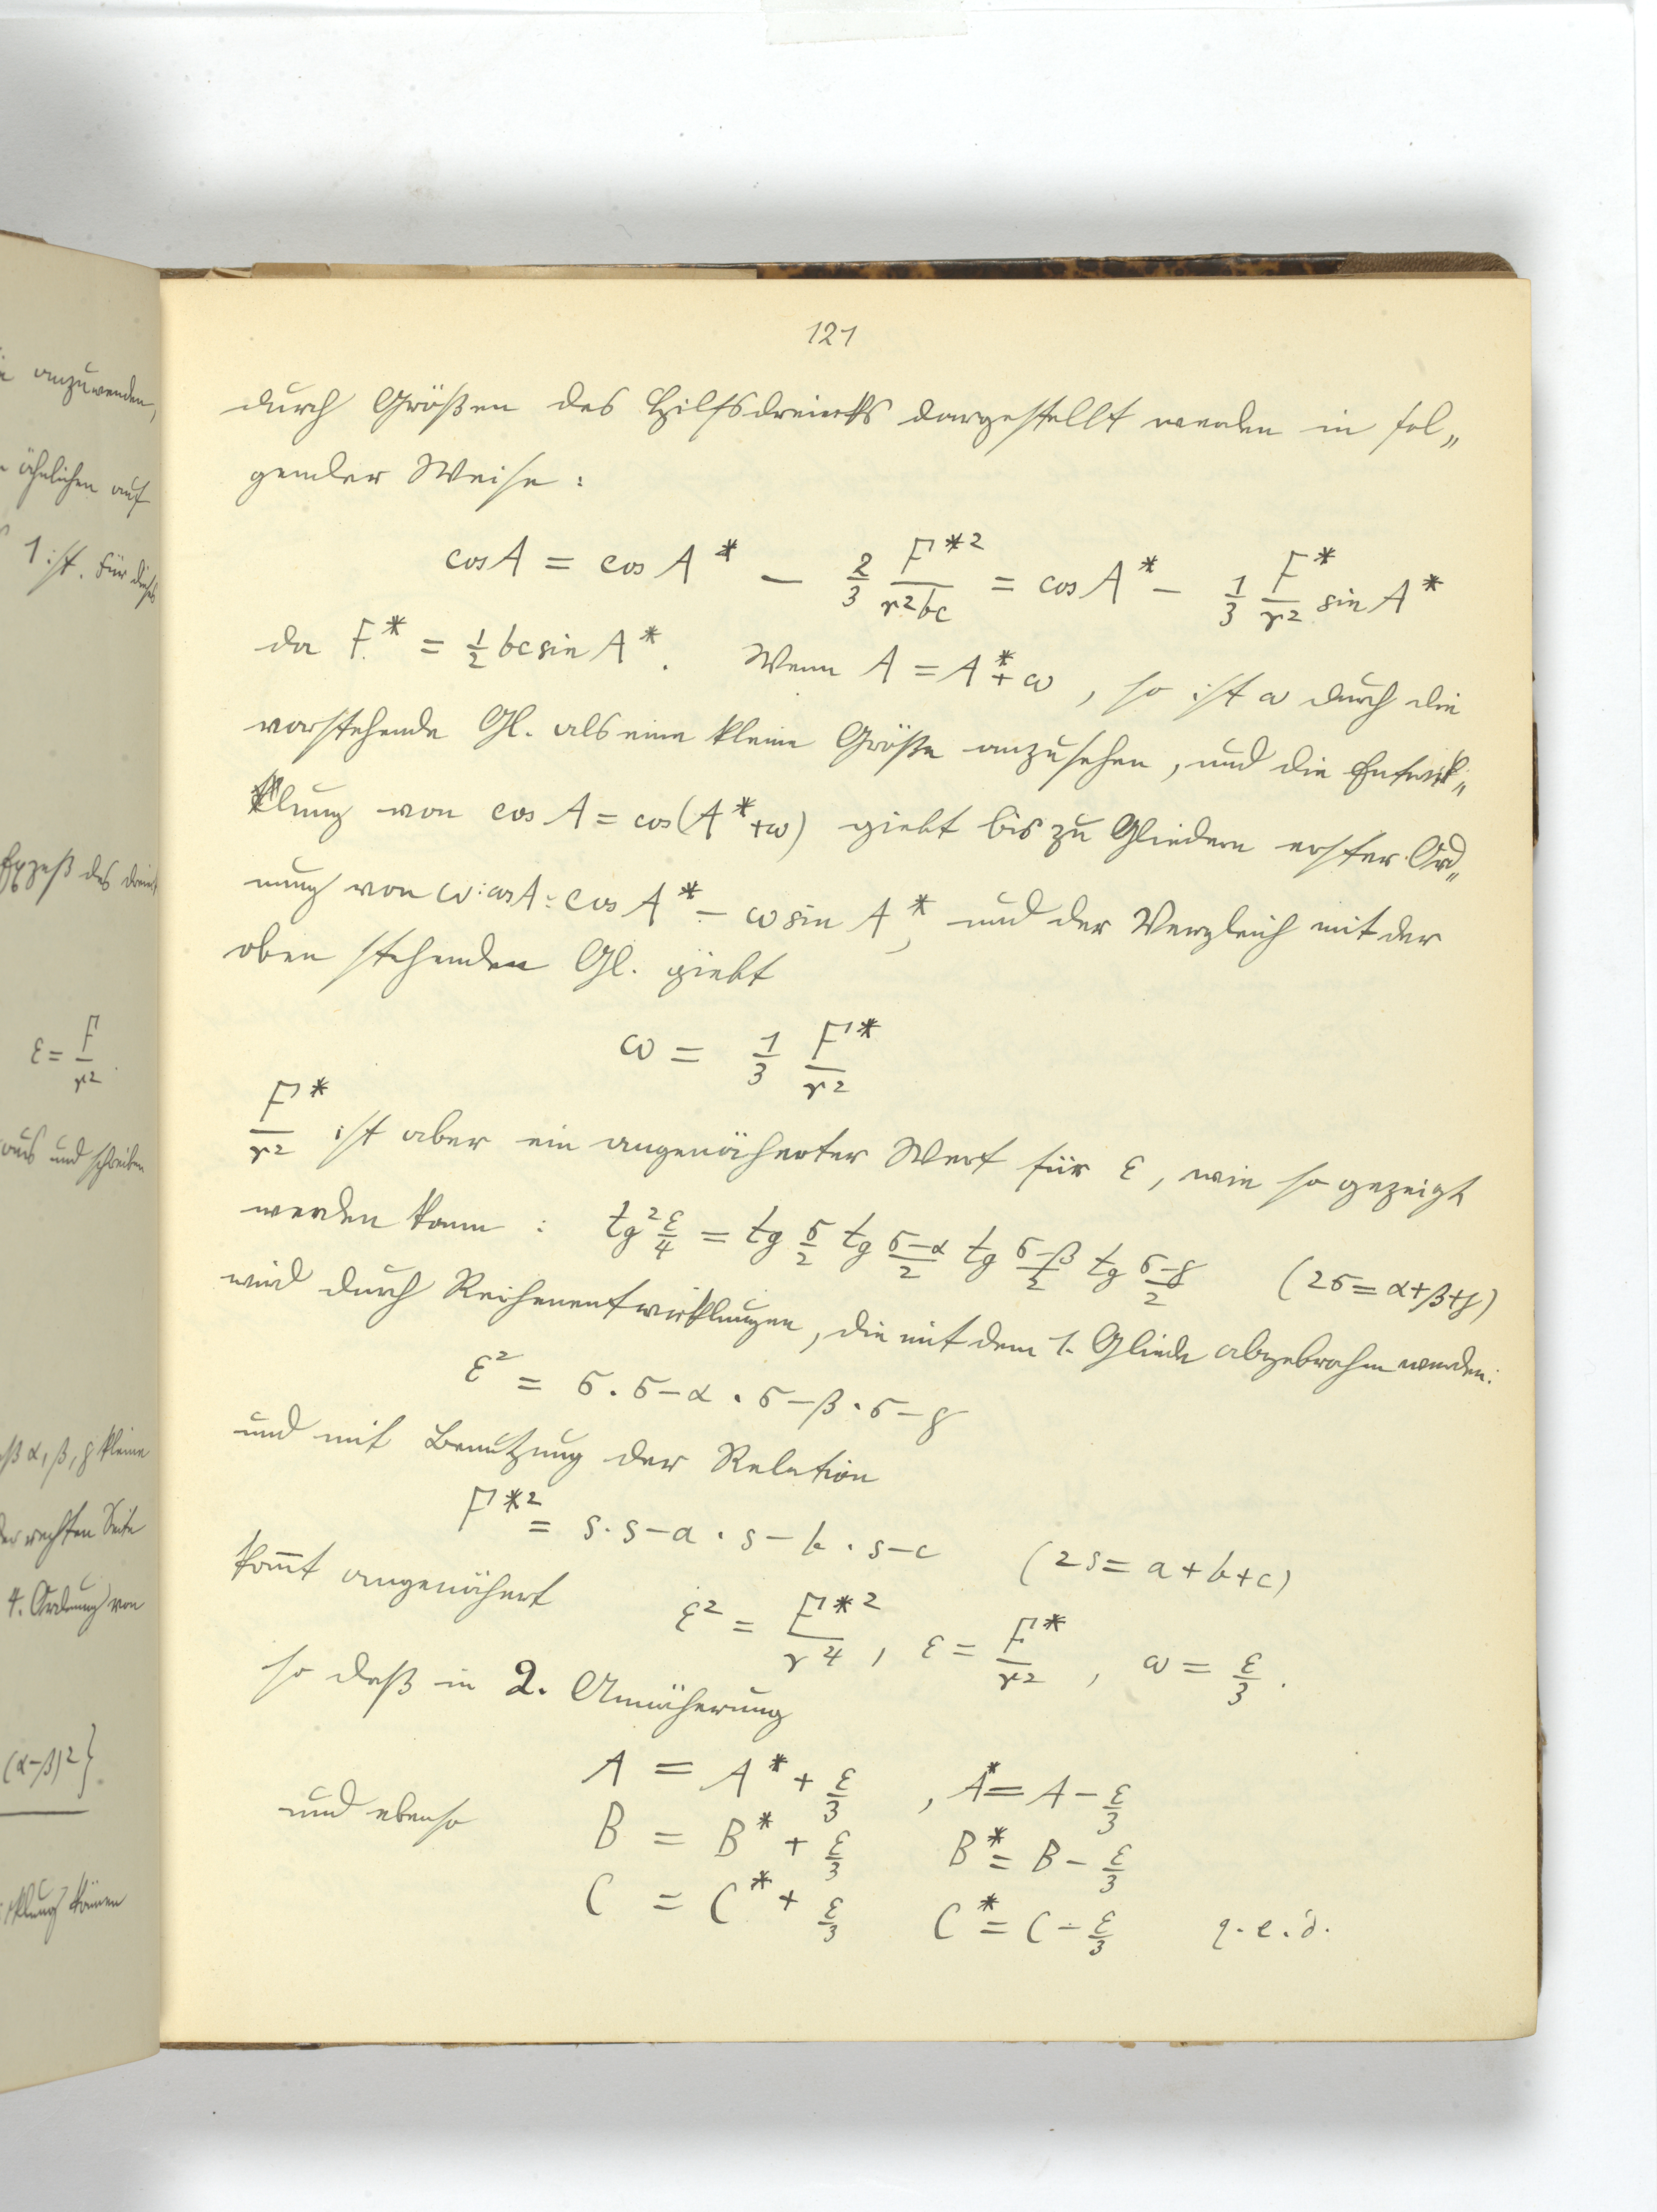 121
durch Größen des Hilfsdreiecks dargestellt werden in fol„
gender Weise:
cos A = cos A* − 2/3 F*²/r²bc = cos A* − 1/3 F*/r² sin A*
da F* = 1/2 bc sin A*. Wenn A = A* + ω, so ist ω durch die
vorstehende Gl. als eine kleine Größe anzusehen, und die Entwick„
klung von cos A = cos(A* + ω) giebt bis zu Gliedern erster Ord„
nung von ω: cos A = cos A* − ω sin A*, und der Vergleich mit der
oben stehenden Gl. giebt
ω = 1/3 F*/r²
F*/r² ist aber ein angenäherter Wert für ε, wie so gezeigt
werden kann: tg² ε/4 = tg σ/2 tg (σ−α)/2 tg (σ−β)/2 tg (σ−γ)/2 (2σ = α+β+γ)
wird durch Reihenentwicklungen, die mit dem 1. Gliede abgebrochen werden:
ε² = σ . σ−α . σ−β . σ−γ
und mit Benutzung der Relation
F*² = s . s−a . s−b . s−c (2s = a+b+c)
kom̅t angenähert ε² = F*²/r⁴, ε = F*/r², ω = ε/3.
so daß in 2. Annäherung
A = A* + ε/3, A* = A − ε/3
und ebenso B = B* + ε/3 B* = B − ε/3
C = C* + ε/3 C* = C − ε/3 q.e.d.
anzuwenden,
ähnlichen auf
1 ist. Für dieses
Exzeß des
ε = F/r².
aus und schreiben
α, β, γ kleine
der rechten Seite
4. Ordnung von
(α−β)²}.
können